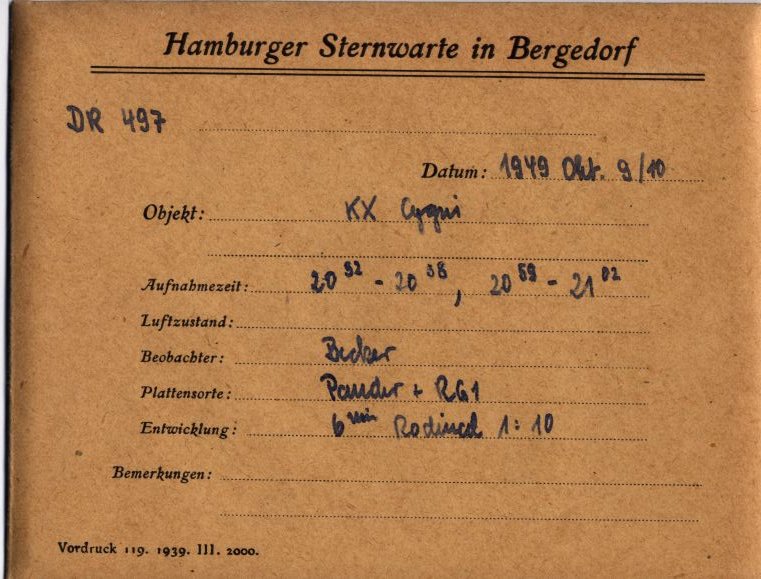 Hamburger Sternwarte in Bergedorf
DR 497
Datum: 1949 Okt. 9/10
Objekt: KX Cygni
Aufnahmezeit: 20 52 - 20 58, 20 59 - 21 02
Luftzustand:
Beobachter: Becker
Plattensorte: + RG1
Entwicklung: 6 min Rodinal 1:10
Bemerkungen:
Vordruck 119. 1939. III. 2000.